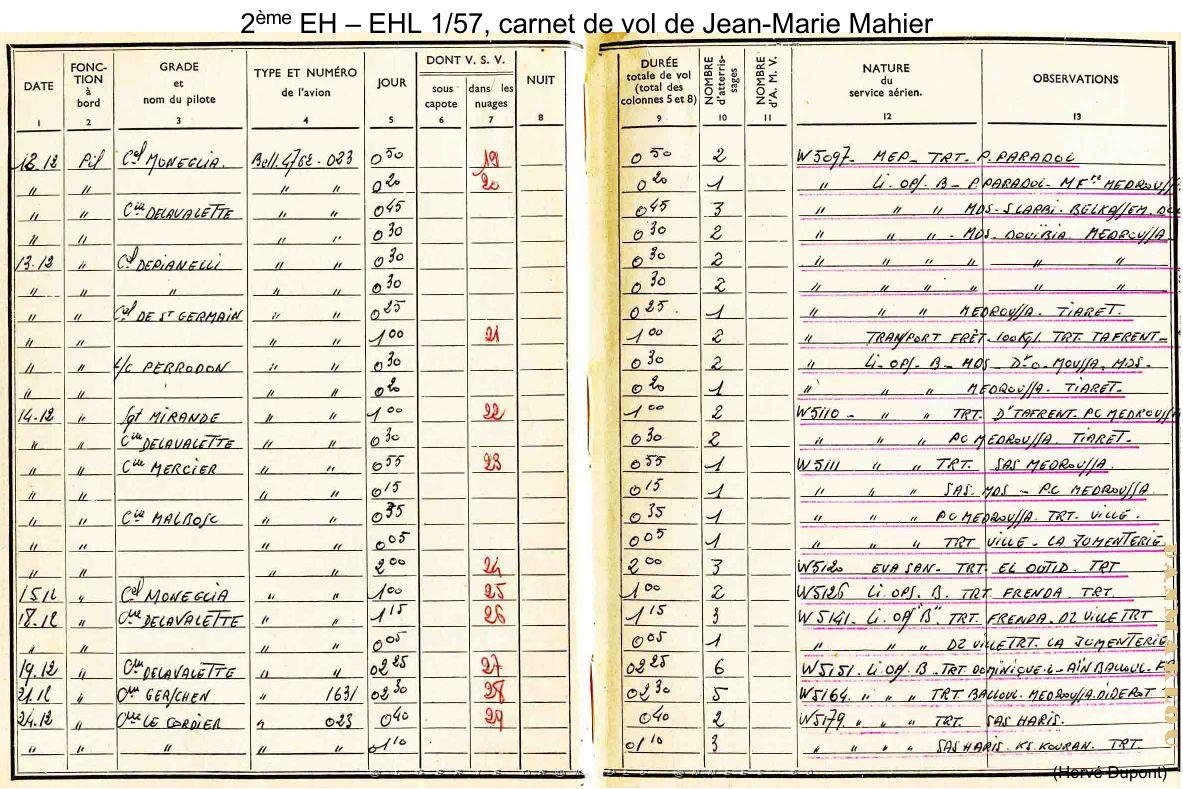 2ème EH – EHL 1/57, carnet de vol de Jean-Marie Mahier
DATE FONCTION à bord GRADE et nom du pilote TYPE ET NUMÉRO de l'avion JOUR DONT V. S. V. sous capote dans les nuages NUIT DURÉE totale de vol (total des colonnes 5 et 8) NOMBRE d'atterrissages NOMBRE d'A. M. V. NATURE du service aérien. OBSERVATIONS
1 2 3 4 5 6 7 8 9 10 11 12 13
12.12 Pil Cel MONEGLIA. Bell.47G2-023 0 50 19 0 50 2 W5097- MEP- TRT- P.PARADOL
" " " " 0 20 20 0 20 1 " Li. Ops. B - P.PARADOL- MEDROUSSA
" " Cne DELAVALETTE " " 0 45 0 45 3 " " " MDS- SLARBI- BELKASSEM.
" " " " 0 30 0 30 2 " " " - MDS- DOUÏBIA MEDROUSSA
13.12 " Cl DEPIANELLI " " 0 30 0 30 2 " " " " "
" " " " " 0 30 0 30 2 " " " " " "
" " Cel DE St GERMAIN " " 0 25 0 25 1 " MEDROUSSA. TIARET.
" " " " 1 00 21 1 00 2 " TRANSPORT FRÊT- 100Kgs. TRT. TAFRENT-
" " S/C PERRODON " " 0 30 0 30 2 " Li- Ops- B- MDS- MOUSSA. MDS-
" " " " 0 20 0 20 1 " " MEDROUSSA. TIARET-
14.12 " Sgt MIRANDE " " 1 00 22 1 00 2 W5110- " " TRT. TAFRENT- PC MEDROUSSA
" " Cne DELAVALETTE " " 0 30 0 30 2 " " " PC MEDROUSSA. TIARET-
" " Cne MERCIER " " 0 55 23 0 55 1 W5111 " " TRT- SAS MEDROUSSA.
" " " " 0 15 0 15 1 " " SAS. MDS - PC MEDROUSSA
" " Cne MALBOSC " " 0 35 0 35 1 " " PC MEDROUSSA. TRT- VILLE-
" " " " 0 05 0 05 1 " " " TRT VILLE- LA JUMENTERIE
" " " " 2 00 24 2 00 3 W5120 EVASAN- TRT- EL OUTID. TRT
15.12 " Cel MONEGLIA " " 1 00 25 1 00 2 W5126 Li. Ops. B. TRT. FRENDA. TRT.
18.12 " Cne DELAVALETTE " " 1 15 26 1 15 3 W5141- Li. Ops "B" TRT. FRENDA. DZ VILLE TRT
" " " " 0 05 0 05 1 " " DZ VILLE TRT. LA JUMENTERIE
19.12 " Cne DELAVALETTE " " 02 25 27 02 25 6 W5151- Li Ops B. TRT DOMINIQUE.L- AÏN BALLOUL-
21.12 " Cne GERSCHEN " 1631 02 30 28 02 30 5 W5164. " " " TRT BALLOUL. MEDROUSSA. DIDEROT-
24.12 " Cne LE CORDIER " 023 0 40 29 0 40 2 W5179 " " " TRT. SAS HARIS.
" " " " " 01 10 01 10 3 " " " " SAS HARIS. KS. KOURAN. TRT.
(Hervé Dupont)